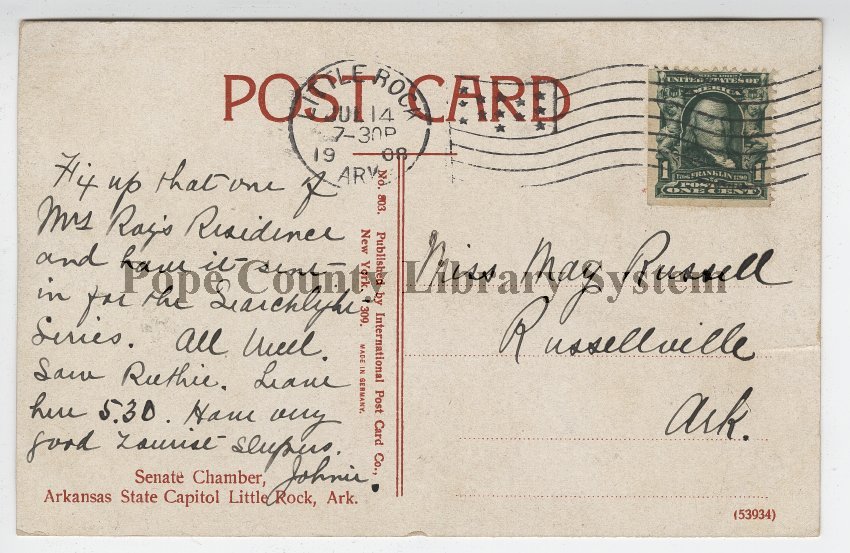 POST CARD
LITTLE ROCK
JUL 14
7-30P
1908
ARK
UNITED STATES OF
AMERICA
1 FRANKLIN 1
POSTAGE
ONE CENT
Fix up that one of
Mrs Ray's Residence
and have it sent
in for the Searchlight
Series. All well.
Saw Ruthie. Leave
here 5.30. Have very
good Tourist sleepers.
Johnie.
Senate Chamber,
Arkansas State Capitol Little Rock, Ark.
No. 803. Published by International Post Card Co.,
New York 309. MADE IN GERMANY.
Miss May Russell
Russellville
Ark.
(53934)
Pope County Library System